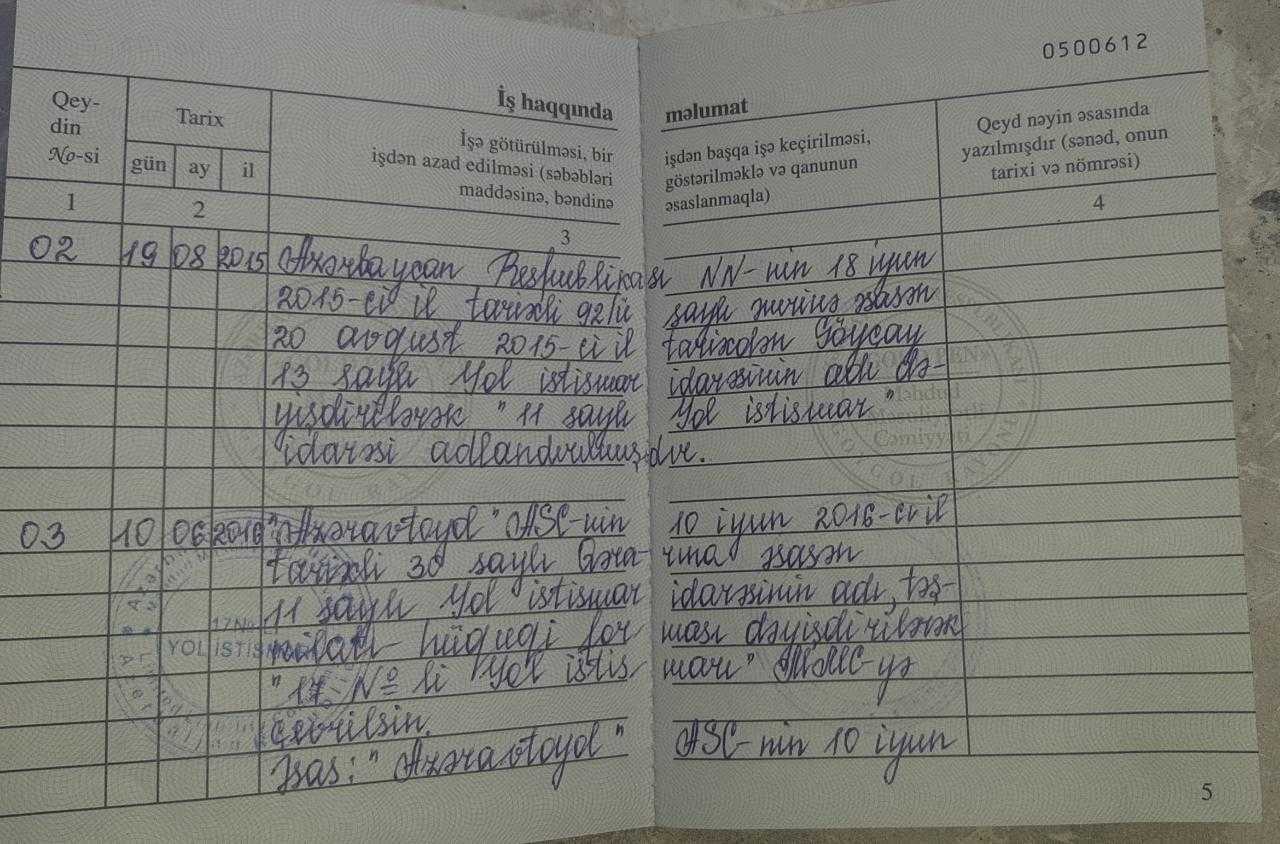 0500612
İş haqqında məlumat
Qey-
din
No-si
Tarix
gün ay il
İşə götürülməsi, bir işdən başqa işə keçirilməsi,
işdən azad edilməsi (səbəbləri göstərilməklə və qanunun
maddəsinə, bəndinə əsaslanmaqla)
Qeyd nəyin əsasında
yazılmışdır (sənəd, onun
tarixi və nömrəsi)
1 2 3 4
02 19 08 2015 Azərbaycan Respublikası NN-nin 18 iyun
2015-ci il tarixli 92/ü saylı əmrinə əsasən
20 avqust 2015-ci il tarixdən Göyçay
13 saylı Yol istismar idarəsinin adı də-
yişdirilərək "11 saylı Yol istismar"
idarəsi adlandırılmışdır.
03 10 06 2016 "Azəravtoyol" ASC-nin 10 iyun 2016-cı il
tarixli 30 saylı Qəra- rına əsasən
11 saylı Yol istismar idarəsinin adı, təş-
kilati-hüquqi for ması dəyişdirilərək
"17 №li Yol istis marı" MMC-yə
çevrilsin.
Əsas: "Azəravtoyol" ASC-nin 10 iyun
YOL İSTİSMARI
Məhdud
Məsuliyyətli
Cəmiyyəti
5